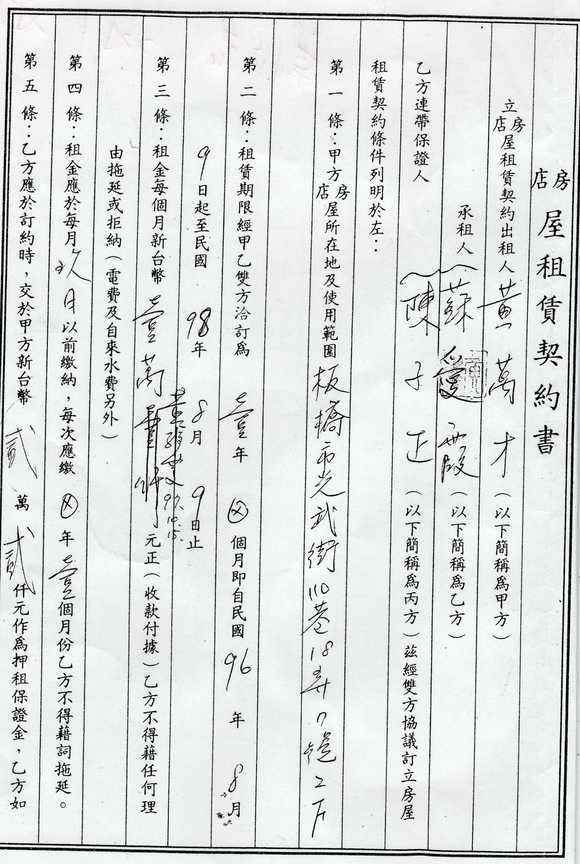 房店屋租賃契約書
立房店屋租賃契約出租人 黃萬才 (以下簡稱為甲方)
承租人 蘇愛霞 (以下簡稱為乙方)
乙方連帶保證人 陳子正 (以下簡稱為丙方) 茲經雙方協議訂立房屋
租賃契約條件列明於左:
第一條:甲方房店屋所在地及使用範圍 板橋市光武街110巷18弄7號2F
第二條:租賃期限經甲乙雙方洽訂為 壹年 ⊗ 個月即自民國 96 年 8 月
9 日起至民國 98 年 8 月 9 日止
第三條:租金每個月新台幣 壹萬 元正(收款付據)乙方不得藉任何理
由拖延或拒納(電費及自來水費另外)
第四條:租金應於每月 玖日 以前繳納,每次應繳 ⊗ 年 壹 個月份乙方不得藉詞拖延。
第五條:乙方應於訂約時,交於甲方新台幣 貳 萬 貳 仟元作為押租保證金,乙方如